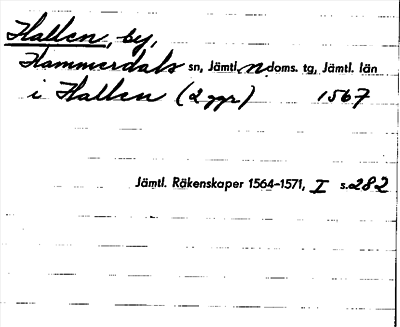 Hallen, by,
Hammerdals sn, Jämtl. n doms. tg, Jämtl. län
i Hallen (2 ggr) 1567
Jämtl. Räkenskaper 1564-1571, I s. 282